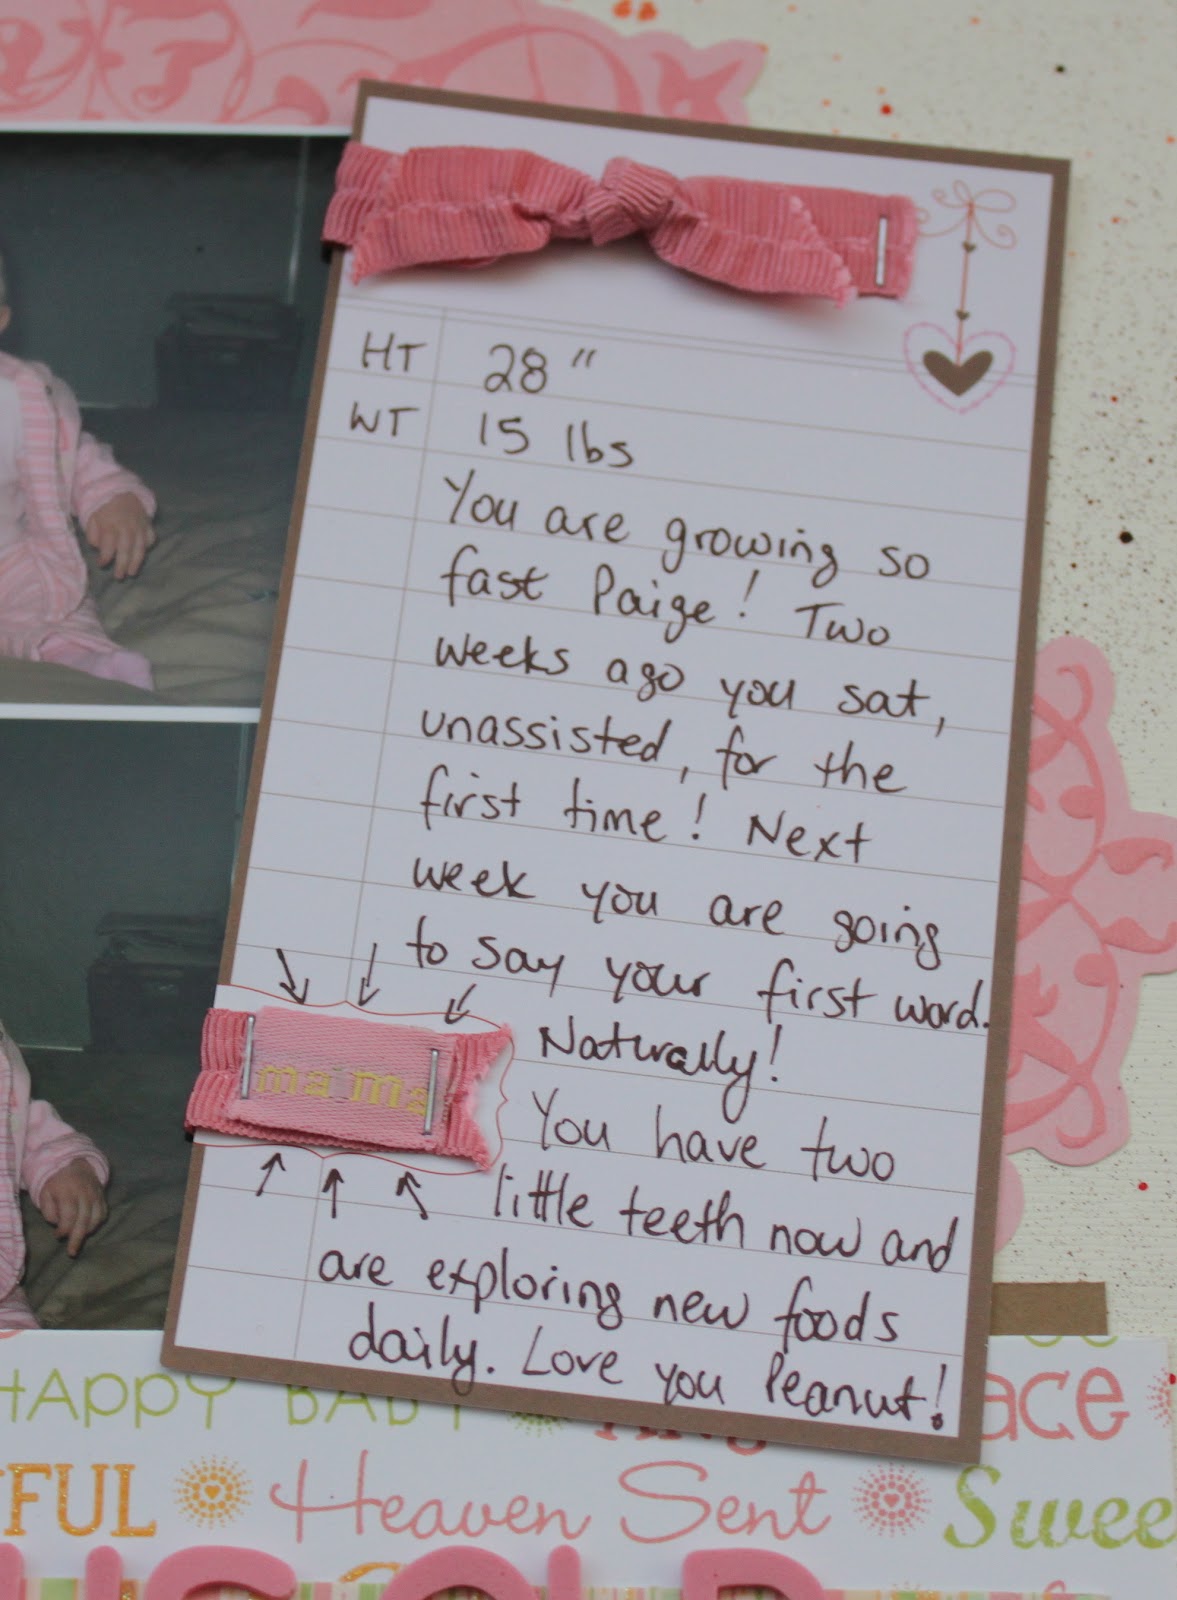 HT 28"
WT 15 lbs
You are growing so
fast Paige! Two
weeks ago you sat,
unassisted, for the
first time! Next
week you are going
to say your first word.
mama
Naturally!
You have two
little teeth now and
are exploring new foods
daily. Love you Peanut!
HAPPY BABY
Heaven Sent